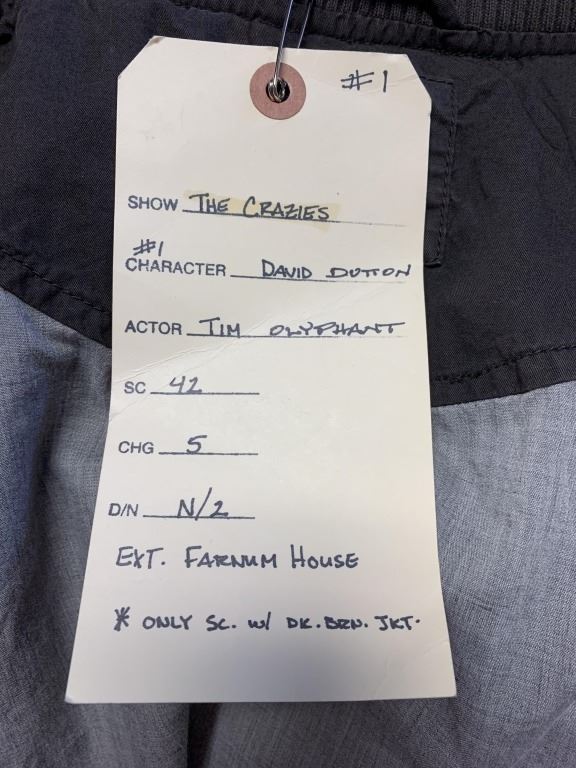 #1
SHOW THE CRAZIES
#1
CHARACTER DAVID DUTTON
ACTOR TIM OLYPHANT
SC 42
CHG 5
D/N N/2
EXT. FARNUM HOUSE
* ONLY SC. W/ DK. BRN. JKT.